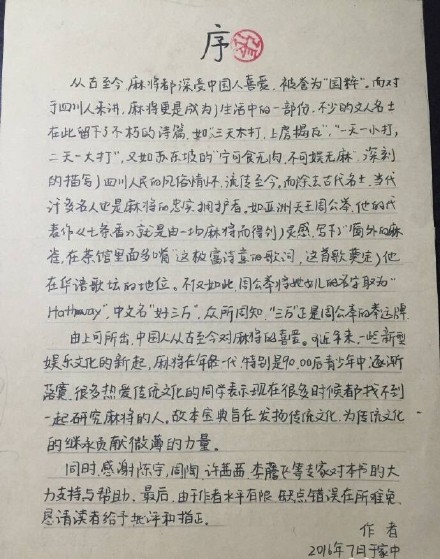 序
从古至今,麻将都深受中国人喜爱,被誉为“国粹”。而对
于四川人来讲,麻将更是成为了生活中的一部份,不少的文人名士
在此留下了不朽的诗篇,如“三天不打,上房揭瓦”,“一天一小打,
二天一大打”,又如苏东坡的“宁可食无肉,不可娱无麻”深刻
的描写了四川人民的风俗情怀,流传至今。而除去古代名士,当代
许多名人也是麻将的忠实拥护者。如亚洲天王周公举,他的代
表作《七条香》就是由一场麻将而得到了灵感,写下了“窗外的麻
雀,在茶馆里面多嘴”这极富诗意的歌词,这首歌奠定了他
在华语歌坛的地位。不仅如此,周公举将她女儿的名字取为“
Hathaway”,中文名“好三万”,众所周知,“三万”正是周公举的幸运牌
由上可所出,中国人从古至今对麻将的喜爱。但近年来,一些新型
娱乐文化的新起,麻将在年轻一代,特别是90.00后青少年中逐渐
落寞,很多热爱传统文化的同学表示现在很多时候都找不到
一起研究麻将的人。故本宝典旨在发扬传统文化,为传统文化
的继承贡献微薄的力量。
同时,感谢陈宇,周陶,许茜茜,李蘑飞等专家对本书的大
力支持与帮助。最后,由于作者水平有限,缺点错误在所难免,
恳请读者给予批评和指正。
作者
2016年7月于家中